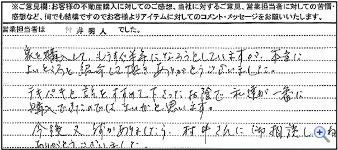 ※ご意見欄：お客様の不動産購入に対してのご感想、当社に対するご意見、営業担当者に対しての苦情・
感想など、何でも結構ですのでお客様よりアイテムに対してのコメント・メッセージをお願いいたします。
営業担当者は 村井勇人 でした。
家を購入して、もうすぐ半年になろうとしていますが、本当に
よいところを紹介して頂き ありがとうございました。
テキパキと話をすすめて下さったお陰で 私達が一番に
購入できたのではないかと思います。
今後又何かありましたら、村井さんに御相談しますね
ありがとうございました。